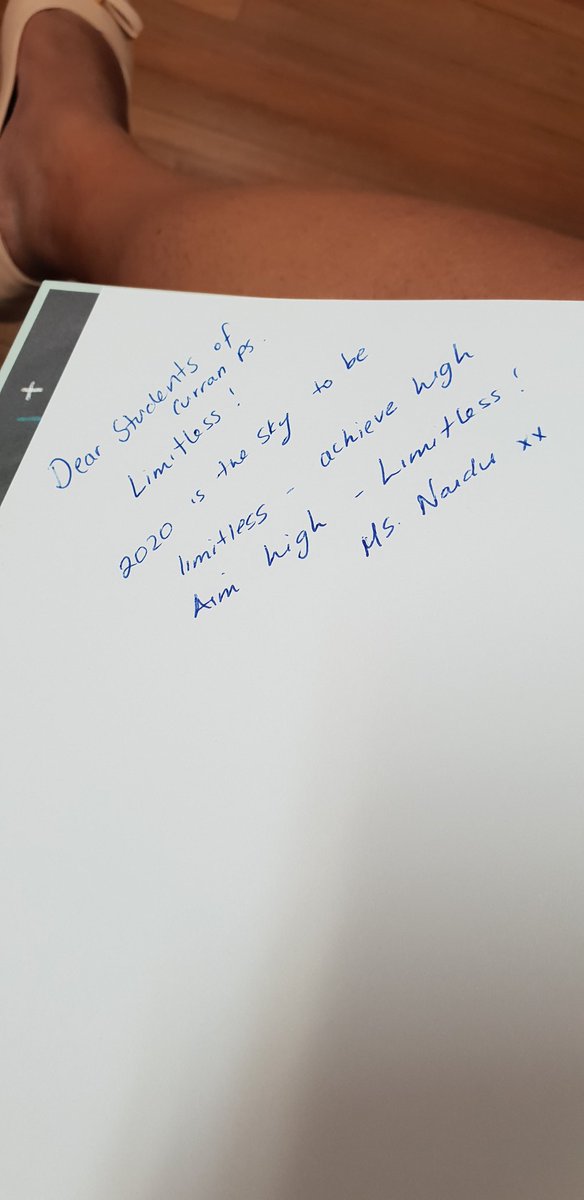 Dear Students of
Curran ps.
Limitless!
2020 is the sky to be
limitless - achieve high
Aim high - Limitless!
Ms. Naidu xx